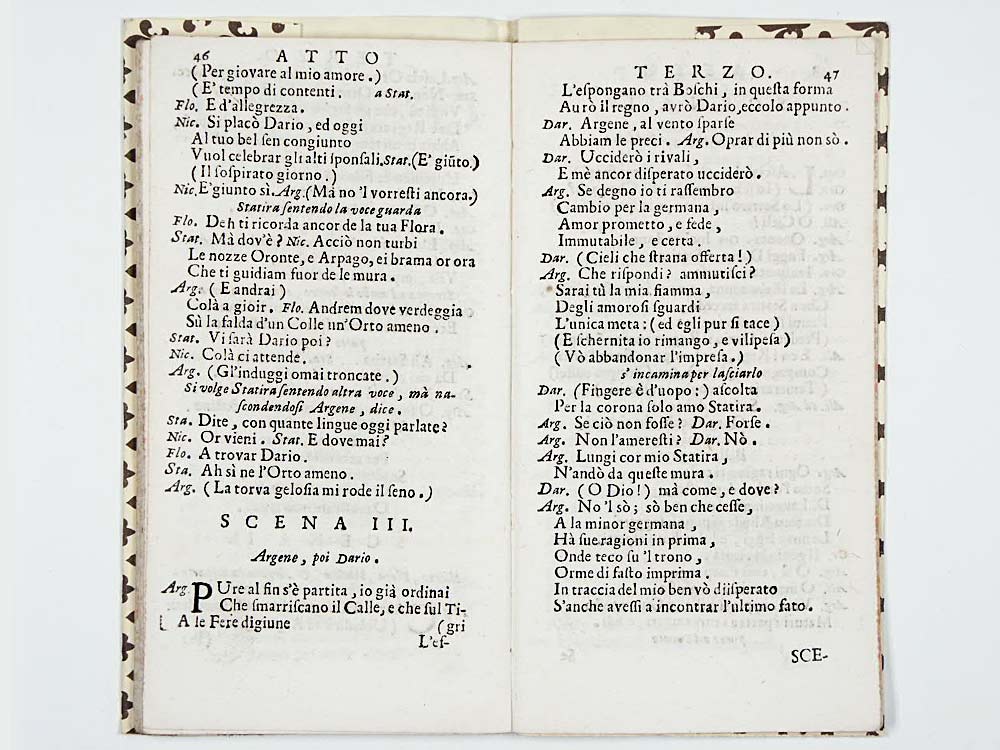 46 ATTO
( Per giovare al mio amore. )
( E' tempo di contenti. a Stat.
Flo. E d'allegrezza.
Nic. Si placò Dario, ed oggi
Al tuo bel ſen congiunto
Vuol celebrar gli alti ſponſali. Stat. (E' giũto.)
( Il ſoſpirato giorno. )
Nic. E'giunto sì. Arg. (Mà no 'l vorreſti ancora.)
Statira ſentendo la voce guarda
Flo. Deh ti ricorda ancor de la tua Flora.
Stat. Mà dov'è? Nic. Acciò non turbi
Le nozze Oronte, e Arpago, ei brama or ora
Che ti guidiam fuor de le mura.
Arg. ( E andrai )
Colà a gioir. Flo. Andrem dove verdeggia
Sù la falda d'un Colle un'Orto ameno.
Stat. Vi ſarà Dario poi?
Nic. Colà ci attende.
Arg. ( Gl'induggi omai troncate. )
Si volge Statira ſentendo altra voce, mà na-
ſcondendoſi Argene, dice.
Sta. Dite, con quante lingue oggi parlate?
Nic. Or vieni. Stat. E dove mai?
Flo. A trovar Dario.
Sta. Ah sì ne l'Orto ameno.
Arg. ( La torva geloſia mi rode il ſeno. )
SCENA III.
Argene, poi Dario.
Arg. PUre al fin s'è partita, io già ordinai
Che ſmarriſcano il Calle, e che ſul Ti-
A le Fere digiune (gri
L'eſ-
TERZO. 47
L'eſpongano trà Boſchi, in queſta forma
Aurò il regno, avrò Dario, eccolo appunto.
Dar. Argene, al vento ſparſe
Abbiam le preci. Arg. Oprar di più non sò.
Dar. Ucciderò i rivali,
E mè ancor diſperato ucciderò.
Arg. Se degno io ti raſſembro
Cambio per la germana,
Amor prometto, e fede,
Immutabile, e certa.
Dar. ( Cieli che ſtrana offerta! )
Arg. Che riſpondi? ammutiſci?
Sarai tù la mia fiamma,
Degli amoroſi ſguardi
L'unica meta: ( ed egli pur ſi tace )
( E ſchernita io rimango, e vilipeſa )
( Vò abbandonar l'impreſa. )
s'incamina per laſciarlo
Dar. (Fingere è d'uopo:) aſcolta
Per la corona ſolo amo Statira.
Arg. Se ciò non foſſe? Dar. Forſe.
Arg. Non l'amereſti? Dar. Nò.
Arg. Lungi cor mio Statira,
N'andò da queſte mura.
Dar. (O Dio!) mà come, e dove?
Arg. No 'l sò; sò ben che ceſſe,
A la minor germana,
Hà ſue ragioni in prima,
Onde teco ſu 'l trono,
Orme di faſto imprima.
In traccia del mio ben vò diiſperato
S'anche aveſſi a incontrar l'ultimo fato.
SCE-